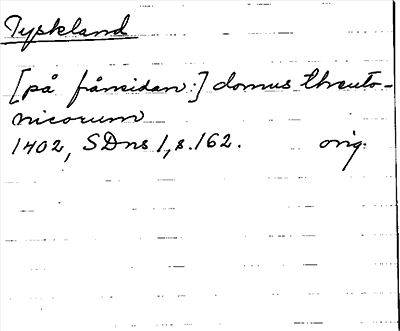 Tyskland
[på frånsidan:] domus threuto-
nicorum
1402, SDns 1, s. 162. orig.